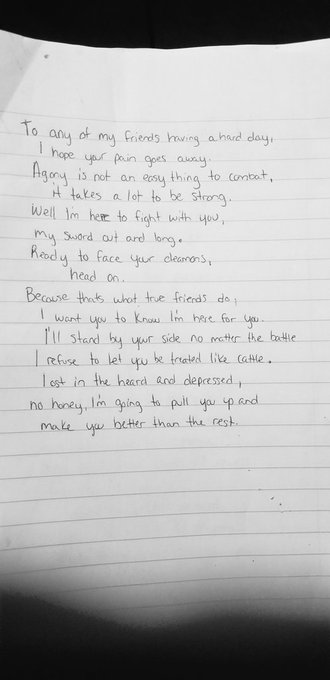 To any of my friends having a hard day,
I hope your pain goes away.
Agony is not an easy thing to combat,
it takes a lot to be strong.
Well I'm here to fight with you,
my sword out and long.
Ready to face your deamons,
head on.
Because thats what true friends do,
I want you to know I'm here for you.
I'll stand by your side no matter the battle
I refuse to let you be treated like cattle.
Lost in the heard and depressed,
no honey, I'm going to pull you up and
make you better than the rest.